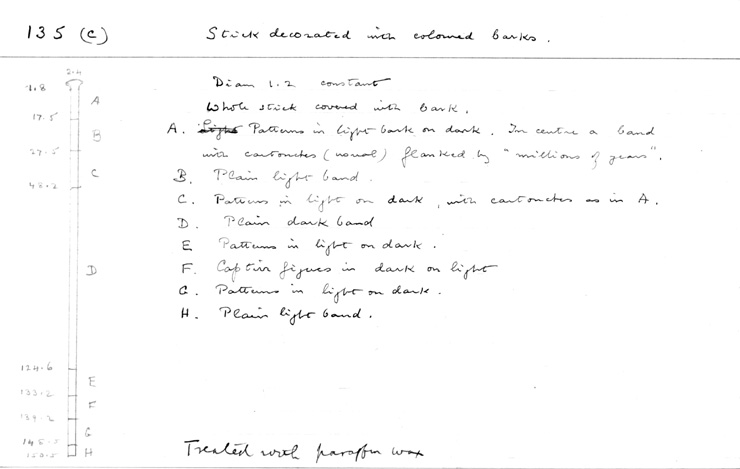 135 (c) Stick decorated with coloured barks.
2.4
1.8
Diam 1.2 constant
A
Whole stick covered with bark.
17.5
A. Light Patterns in light bark on dark. In centre a band
B
with cartouches (usual) flanked by "millions of years".
27.5
B. Plain light band.
C
48.2
C. Patterns in light on dark, with cartouches as in A.
D. Plain dark band
E Patterns in light on dark.
D
F. Captive figures in dark on light
G. Patterns in light on dark.
H. Plain light band.
124.6
E
133.2
F
139.2
G
145.5
150.5
H
Treated with paraffin wax